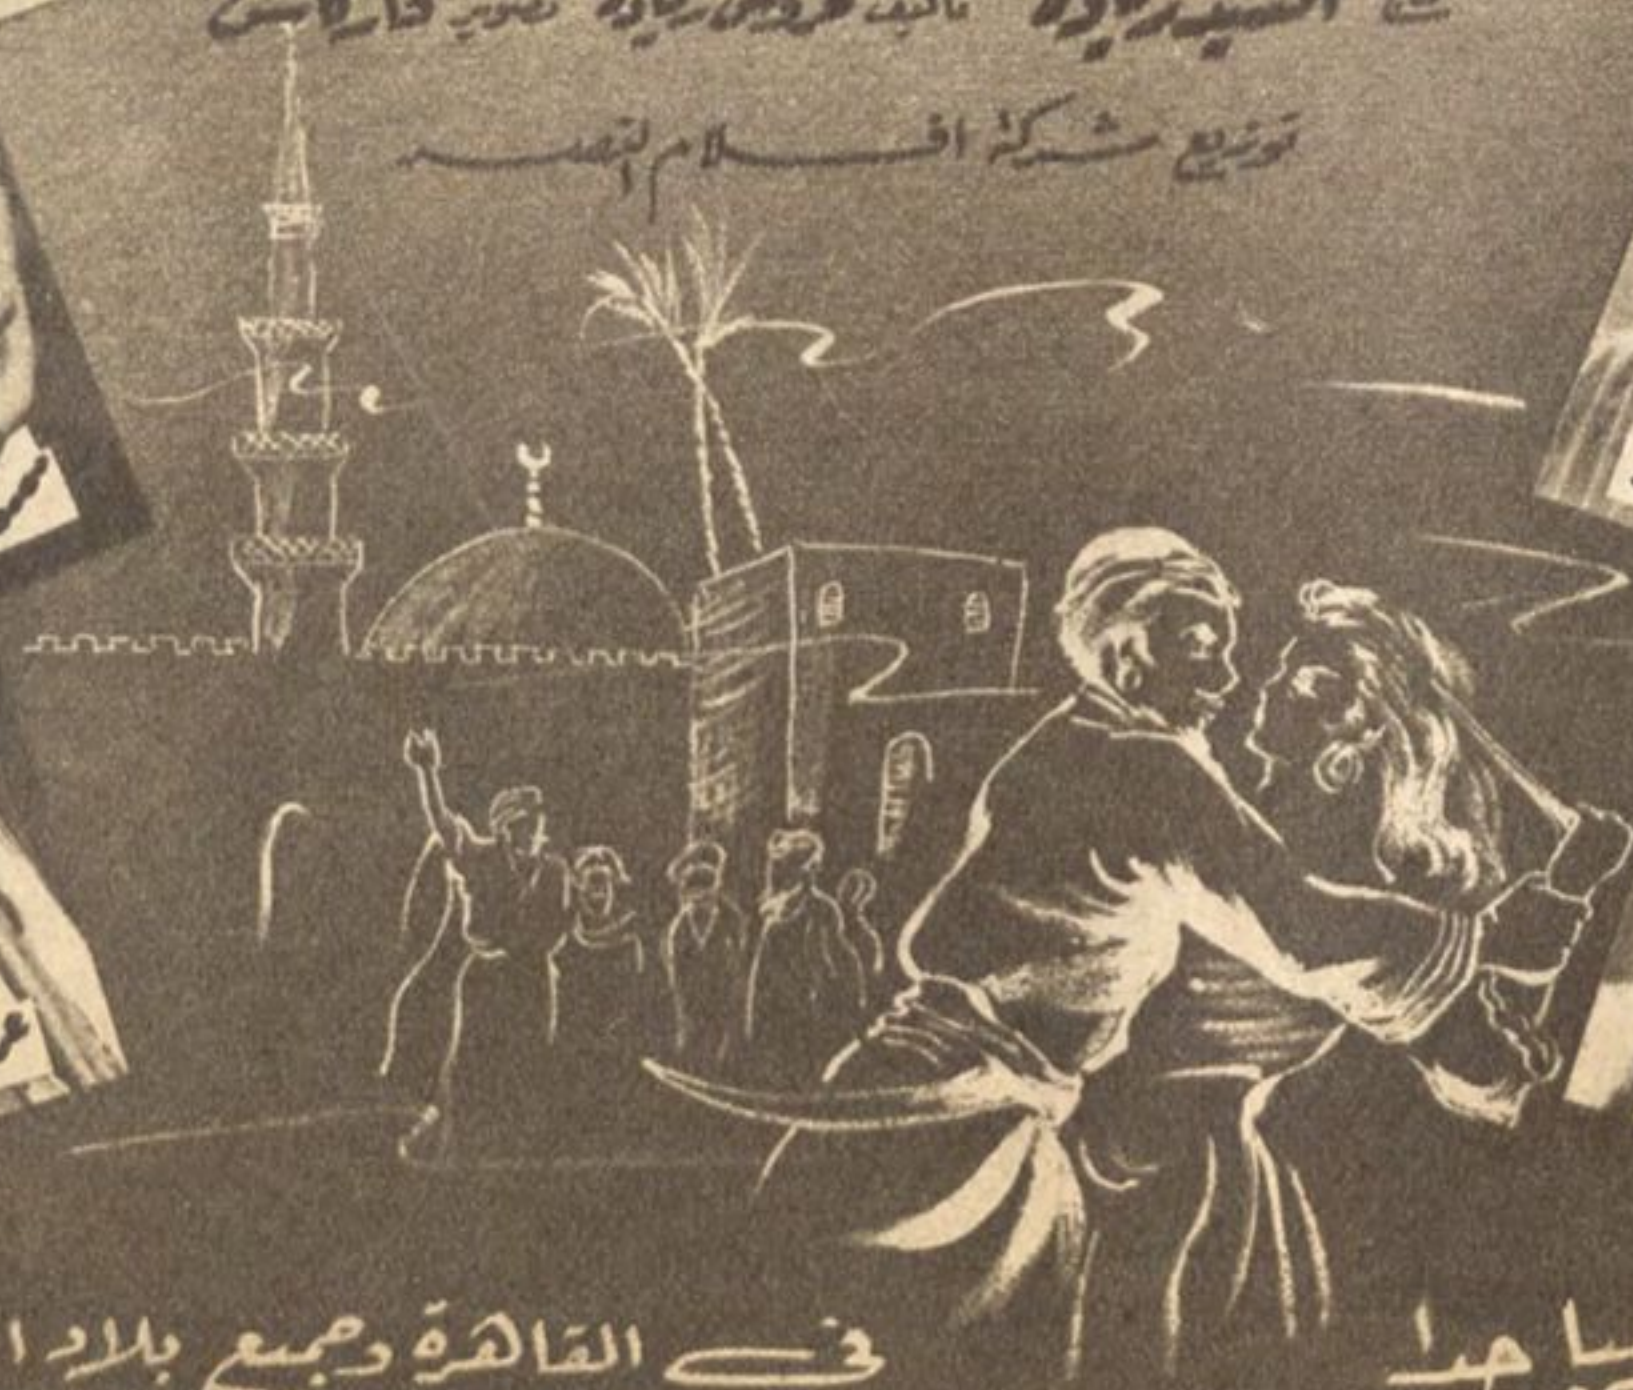 السيد زيادة تأليف زيادة تصوير
توزيع شركة افلام النصر
جدا فى القاهرة وجميع بلاد